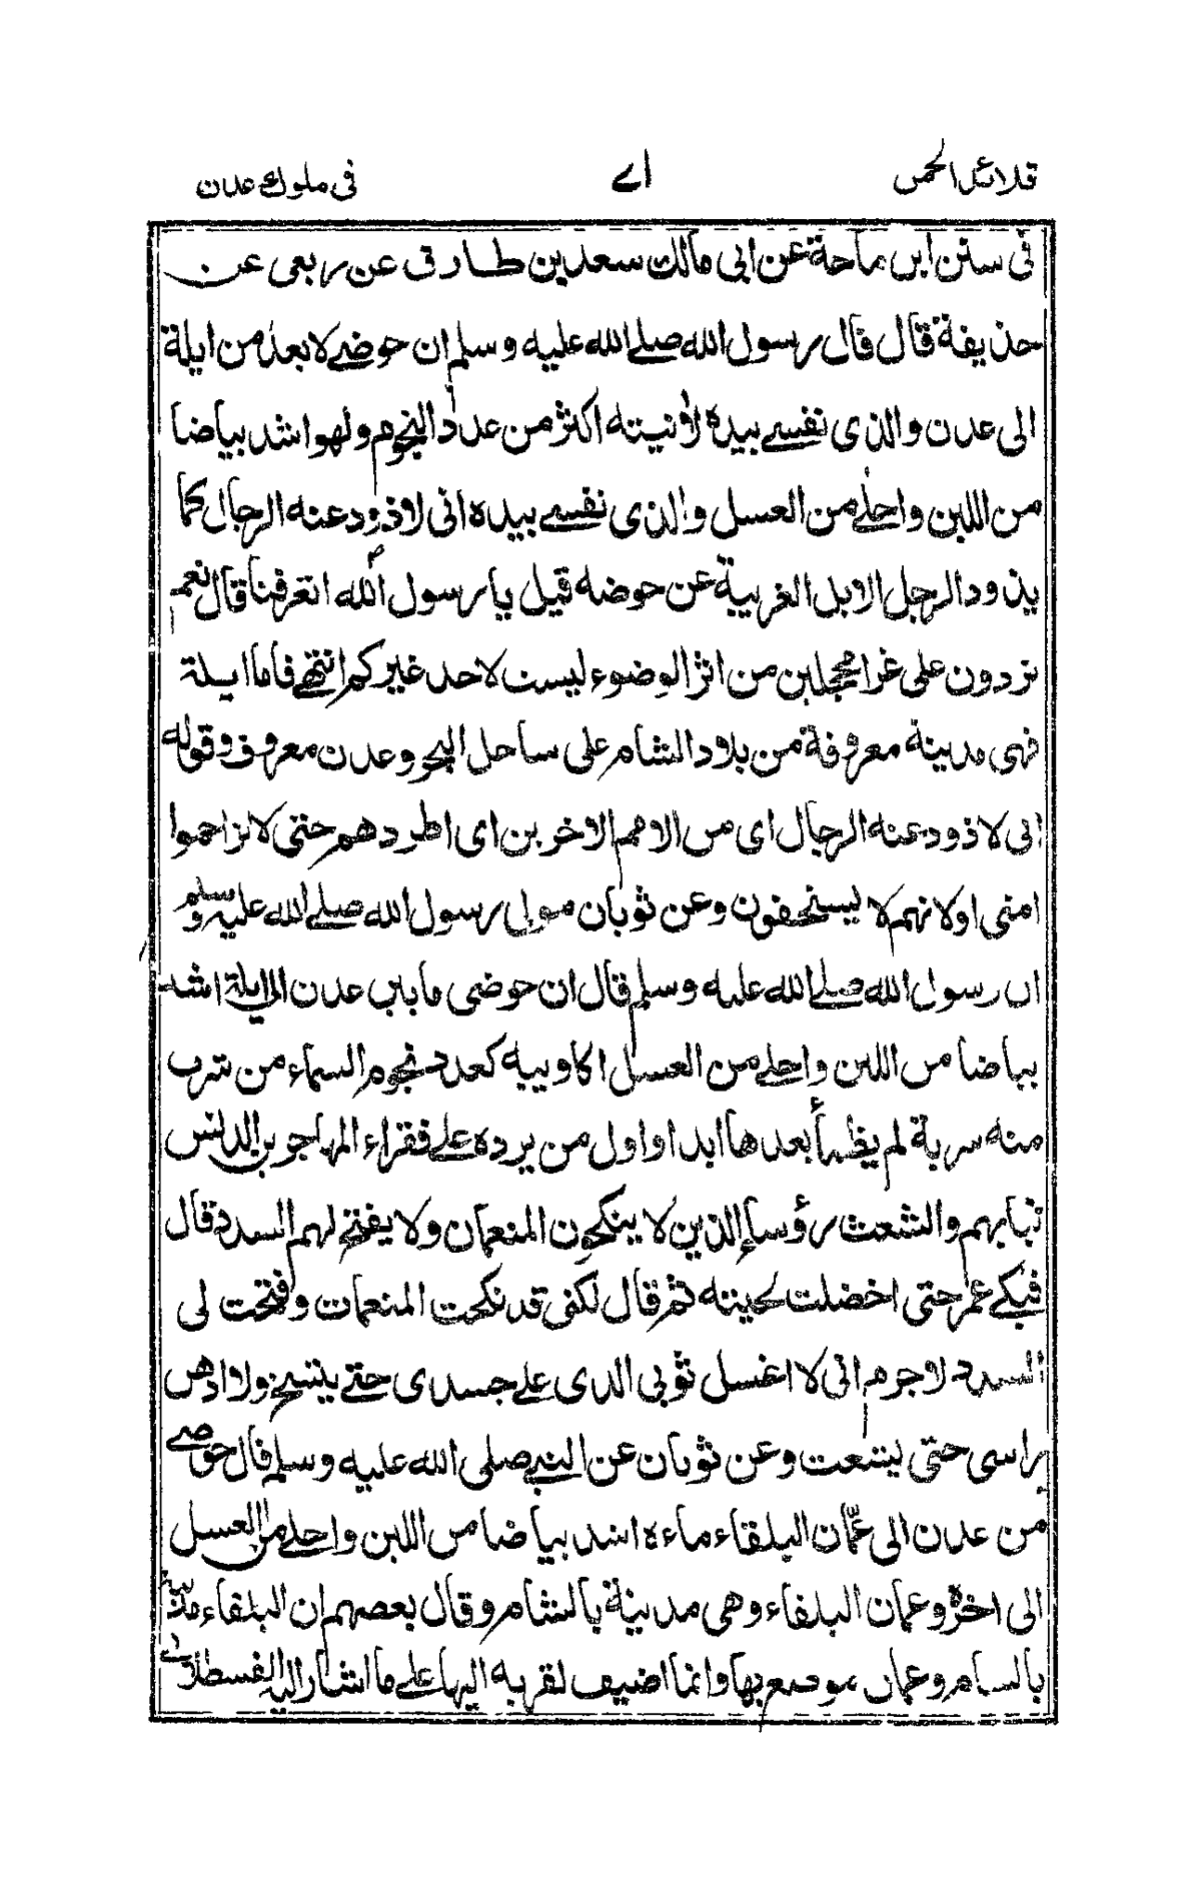 قلائد الجمن ا٧ في ملوك عدن
في سنن ابن ماجة عن ابي مالك سعد بن طارق عن ربعي عن
حذيفة قال قال رسول الله صلے الله عليه وسلم ان حوضے لابعد من ايلة
الى عدن والذى نفسے بيده لآنيته اكثر من عدد النجوم ولهو اشد بياضا
من اللبن واحلے من العسل والذى نفسے بيده انى لاذود عنه الرجال كما
يذود الرجل الابل الغريبة عن حوضه قيل يا رسول الله اتعرفنا قال نعم
تردون على غرا محجلين من اثر الوضوء ليست لاحد غيركم انتهى فاما ايلة
فهى مدينة معروفة من بلاد الشام على ساحل البحر وعدن معروف وقوله
انى لاذود عنه الرجال اى من الامم الاخرين اى اطردهم حتى لا تزاحموا
امتى اولانهم لا يستحقون وعن ثوبان مولى رسول الله صلے الله عليه وسلم
ان رسول الله صلے الله عليه وسلم قال ان حوضى ما بين عدن الى ايلة اشد
بياضا من اللبن واحلے من العسل اكاويبه كعدد نجوم السماء من شرب
منه شربة لم يظمأ بعدها ابدا واول من يرده علے فقراء المهاجرين الدنس
ثيابهم والشعث رؤسا الذين لا ينكحون المنعمات ولا يفتح لهم السدد قال
فبكے عمر حتى اخضلت لحيته ثم قال لكنى قد نكحت المنعمات وفتحت لى
السدد لاجرم انى لا اغسل ثوبى الذى علے جسدى حتے يتسخ ولا ادهن
راسى حتى يتشعث وعن ثوبان عن النبے صلى الله عليه وسلم قال حوضے
من عدن الى عمّان البلقاء ماءه اشد بياضا من اللبن واحلے من العسل
الى اخره وعمان البلقاء وهى مدينة بالشام وقال بعضهم ان البلقاء مدينة
بالشام وعمان موضع بها وانما اضيف لقربه اليها علے ما اشار اليه القسطلانے